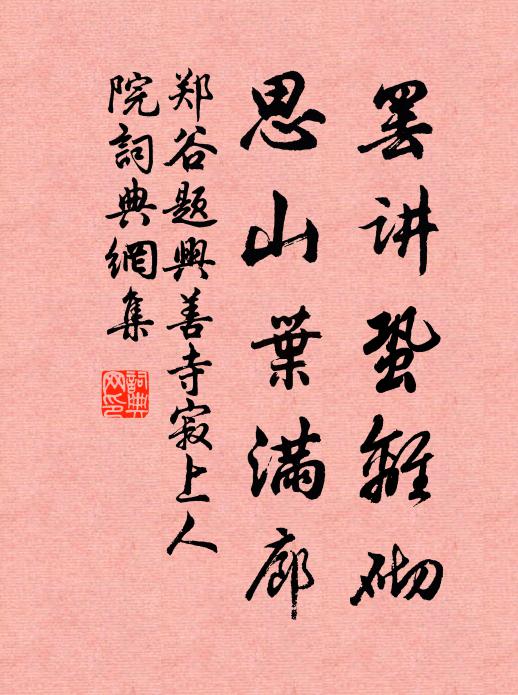 罢讲蛩離砌
思山葉满廊
郑谷题興善寺寂上人
院詞典網集
詞典
网印